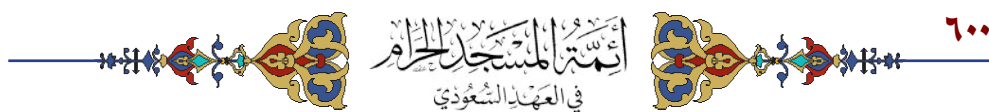 ٦٠٠
أَئِمَّةُ المَسْجِدِ الحَرَامِ
في العَهْدِ السُّعُودِيِّ